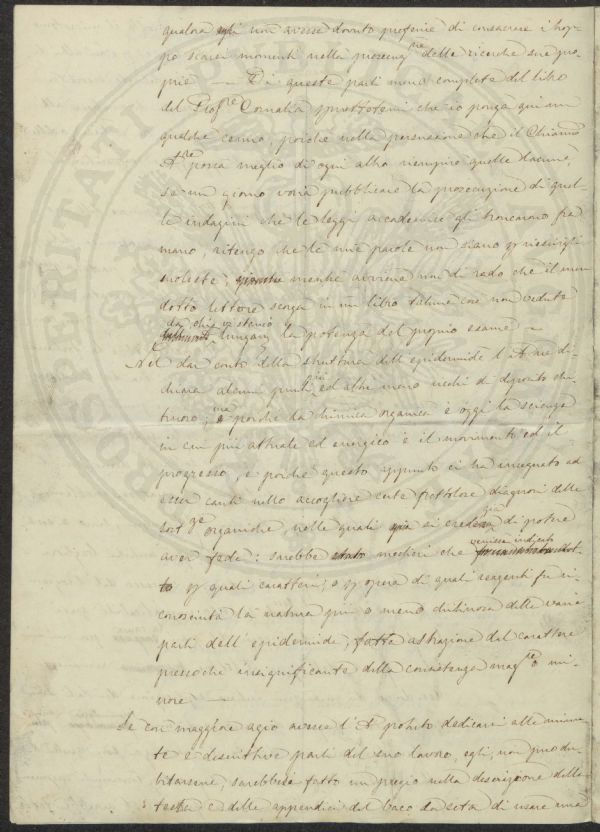 qualora egli non avesse dovuto preferire di consacrare i trop-
po scarsi momenti nella prosecuz.ne delle ricerche sue pro-
prie — Di queste parti meno complete del libro
del Prof.re Cornalia permettetemi che io porga qui un
qualche cenno, poichè nella persuasione che il Chiariss.
A.tore possa meglio di ogni altro riempire quelle lacune,
se un giorno vorrà pubblicare la prosecuzione di quel-
le indagini che le leggi accademiche gli troncarono fra
mano, ritengo che le mie parole non siano p riescirgli
moleste; mentre avviene non di rado che il men
dotto lettore scorga in un libro talune cose non vedute
da chi vi stancò
lunga la potenza del proprio esame —
Nel dar conto della struttura dell'epidermide l'A. ne di-
chiara alcuni punti più ed altri meno ricchi di deposito chi-
tinoso; ma poichè la chimica organica è oggi la scienza
in cui più attuale ed energico è il movimento ed il
progresso, e poichè questo appunto ci ha insegnato ad
esser cauti nello accogliere certe frettolose diagnosi delle
sost.ze organiche nelle quali si credeva già di potere
aver fede: sarebbe mestieri che venisse indicato
p quali caratteri, o p opera di quali reagenti fu ri-
conosciuta la natura più o meno chitinosa delle varie
parti dell'epidermide, fatta astrazione dal carattere
pressochè insignificante della consistenza mag.re o mi-
nore —
Se con maggiore agio avesse l'A. potuto dedicarsi alle minu-
te e descrittive parti del suo lavoro, egli, non può du-
bitarsene, sarebbesi fatto un pregio nella descrizione della
testa e delle appendici del baco da seta di usare una